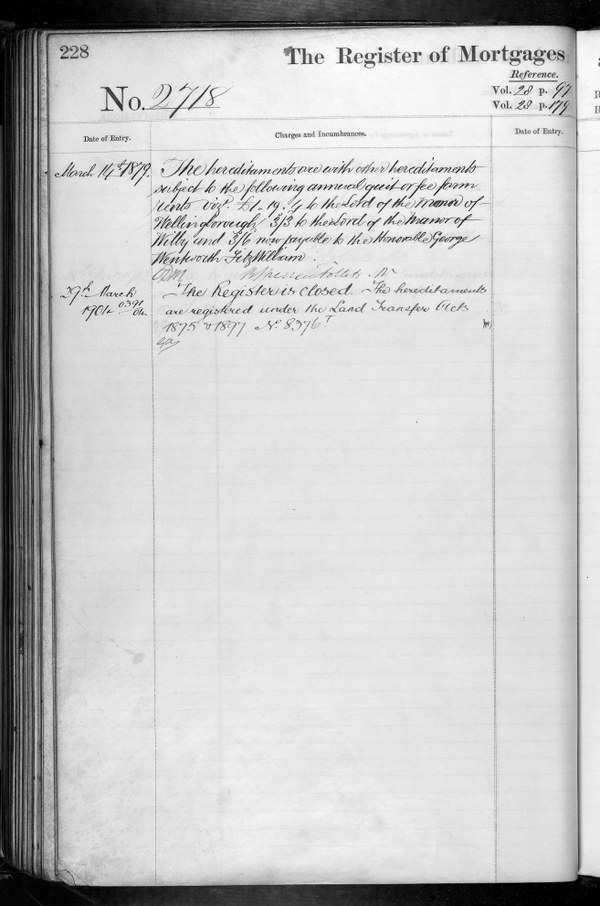 228
The Register of Mortgages
Reference.
No. 2718
Vol. 28 p. 97
Vol. 28 p. 179
Date of Entry.
Charges and Incumbrances.
Date of Entry.
March 14th 1879.
The hereditaments are with other hereditaments
subject to the following annual quit or fee farm
rents viz. £1. 19. 4 to the Lord of the Manor of
Wellingborough 3/3 to the Lord of the Manor of
Wilby and 3/6 now payable to the Honorable George
Wentworth FitzWilliam.
29th March
The Register is closed The hereditaments
1904 0391/04
are registered under the Land Transfer Acts
1875 & 1897 No. 8376